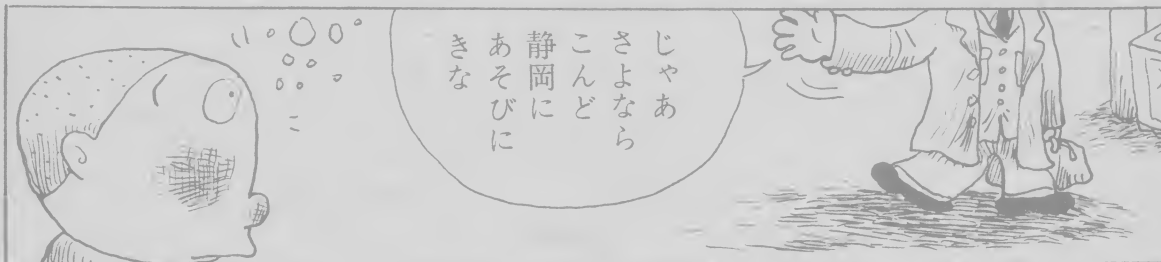 じゃあ
さよなら
こんど
静岡に
あそびに
きな